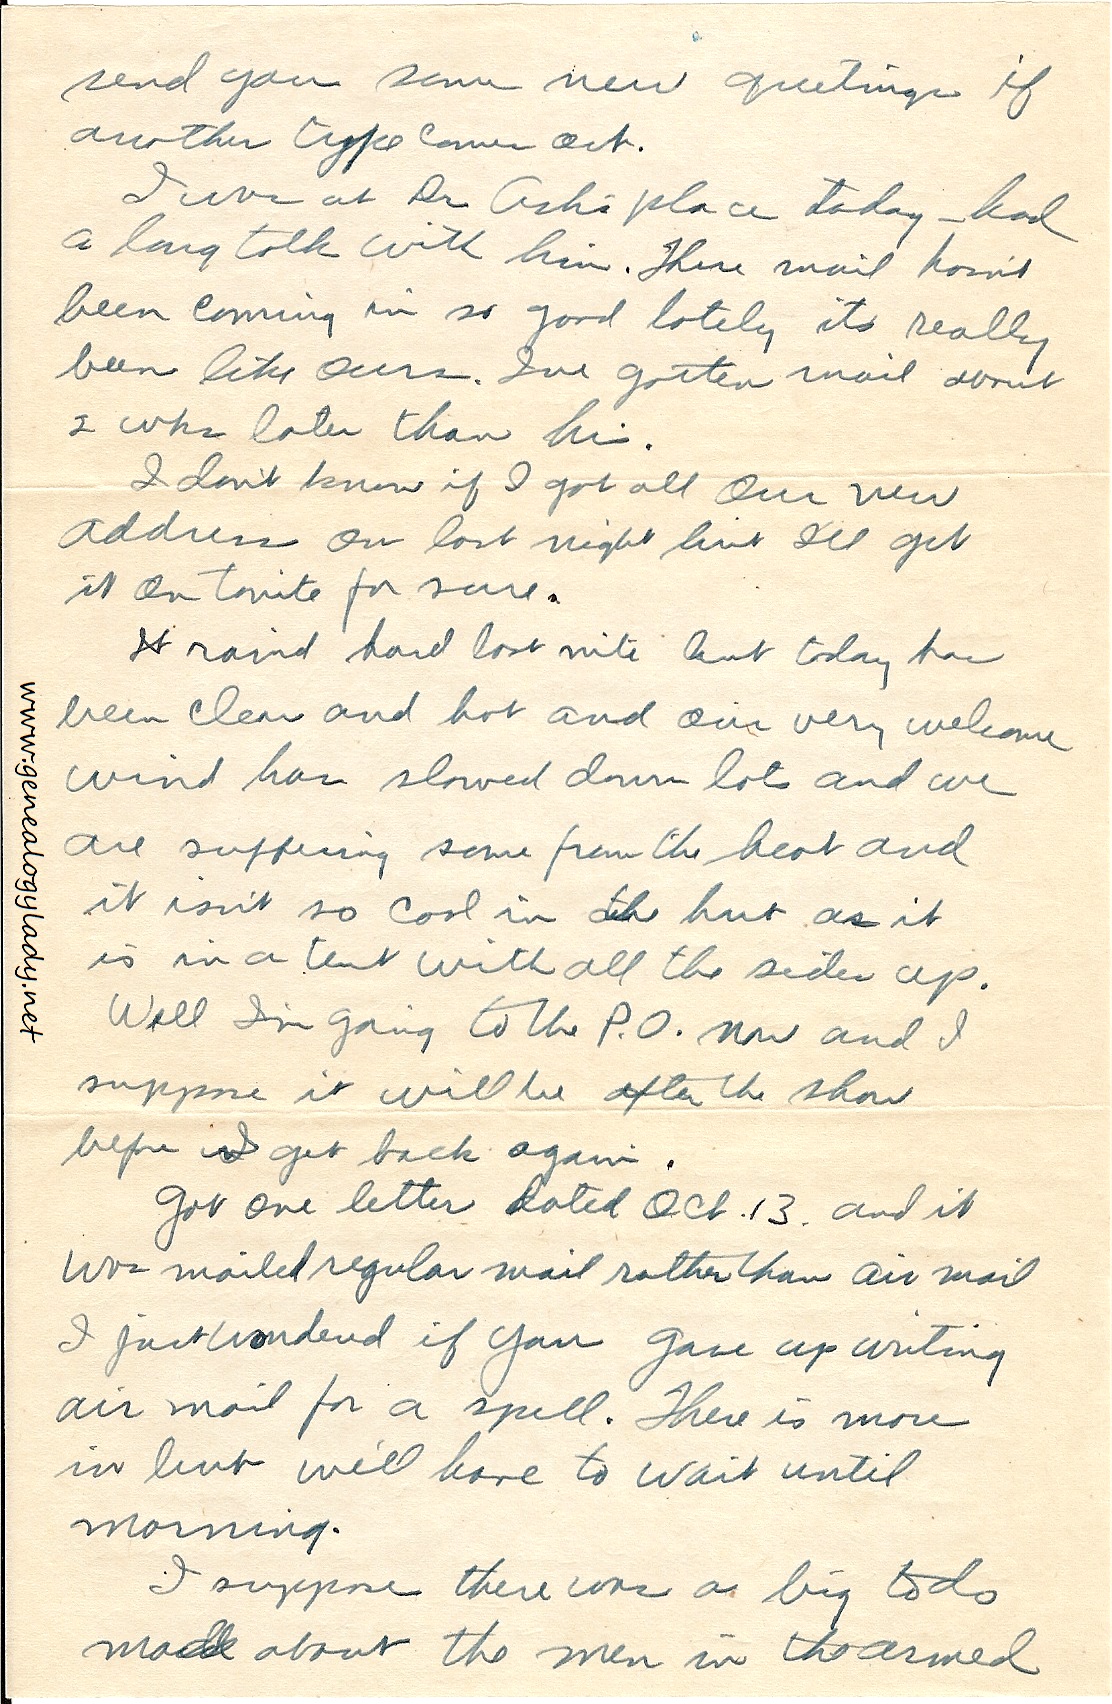 send you some new greetings if
another type comes out.
I was at Dr Ash's place today - had
a long talk with him. There mail hasn't
been coming in so good lately its really
been like ours. I've gotten mail about
2 wks later than his.
I don't know if I got all our new
address on last night but I'll get
it on tonite for sure.
It raind hard last nite but today has
been clear and hot and our very welcome
wind has slowed down lots and we
are suffering some from the heat and
it isn't so cool in the hut as it
is in a tent with all the sides up.
Well I'm going to the P.O. now and I
suppose it will be after the show
before I get back again.
Got one letter dated Oct. 13. and it
was mailed regular mail rather than air mail
I just wonderd if you gave up writing
air mail for a spell. There is more
in but we'll have to wait until
morning.
I suppose there was a big to do
made about the men in the armed
www.genealogylady.net